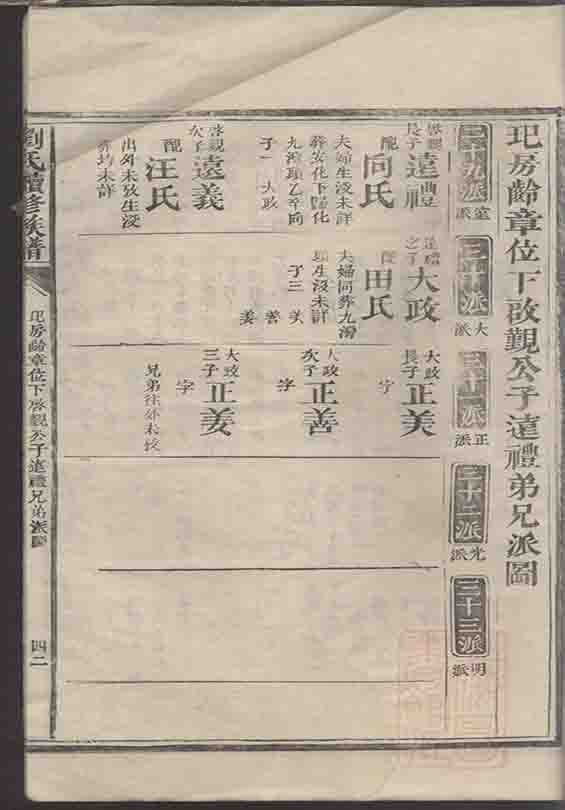 圯房齡章位下啟觀公子遠禮弟兄派圖
二十九派
遠派
三十派
大派
三十一派
正派
三十二派
光派
三十三派
明派
啓觀長子
遠禮
配
向氏
夫婦生沒未詳
葬安化下歸化
九滑項乙辛向
子一 大政
啓觀次子
遠義
配
汪氏
出外未攷生沒
葬均未詳
遠禮之子
大政
配
田氏
夫婦同葬九滑
項生沒未詳
子三 美 善 姜
大政長子
正美
字
大政次子
正善
字
大政三子
正姜
字
兄弟往外未攷
劉氏續修族譜
圯房齡章位下啓觀公子遠禮兄弟派圖
四二